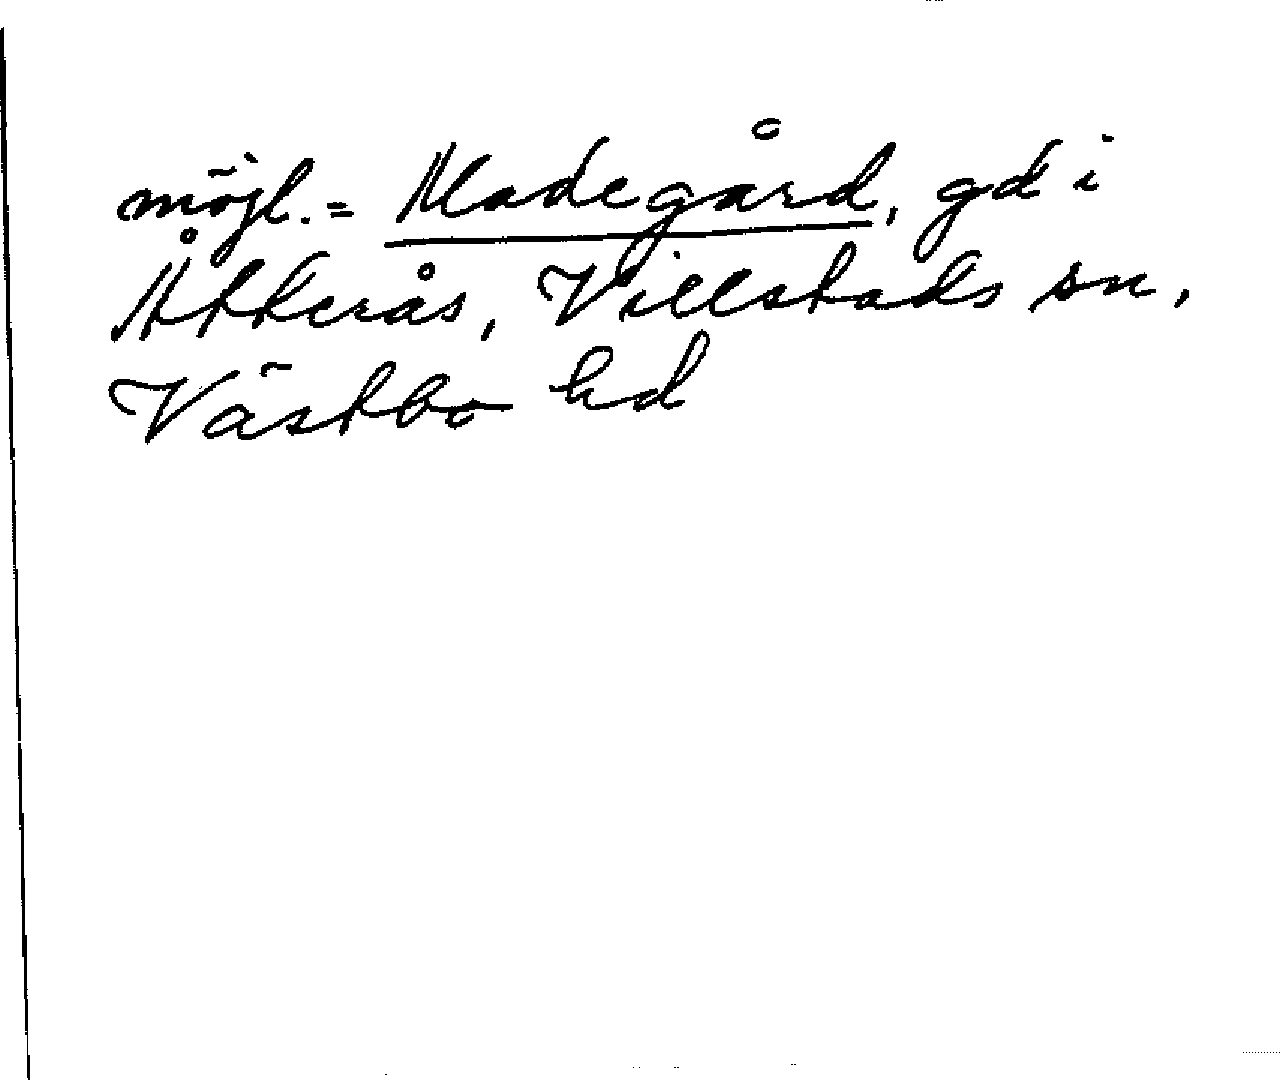 möjl. = Madegård, gd i
Åtterås, Villstads sn,
Västbo hd